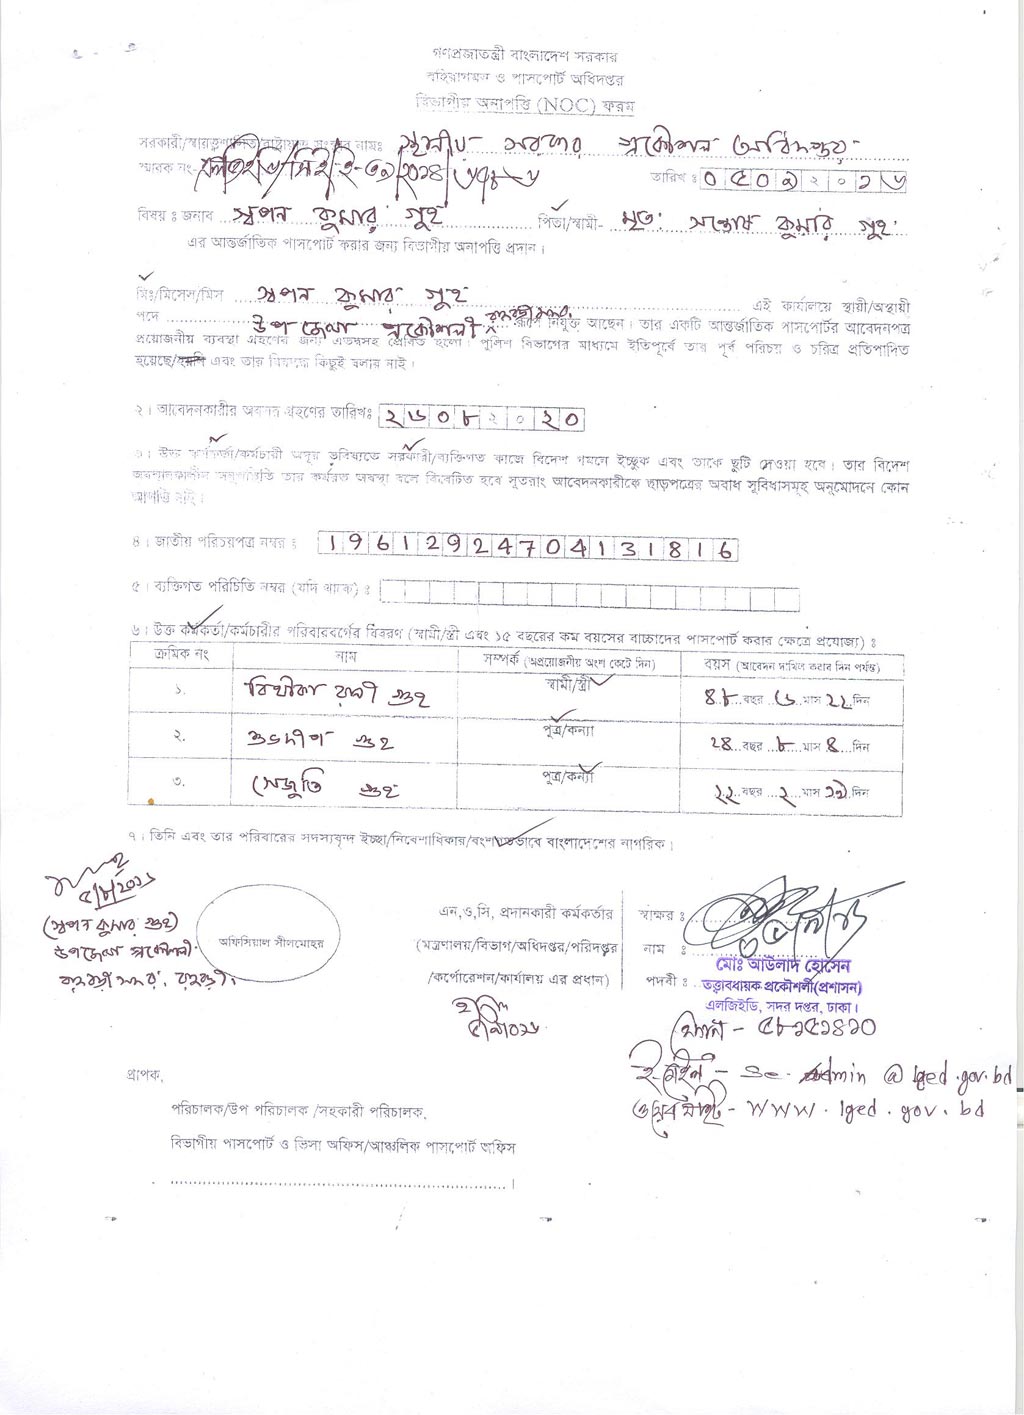 গণপ্রজাতন্ত্রী বাংলাদেশ সরকার
বহিরাগমন ও পাসপোর্ট অধিদপ্তর
বিভাগীয় অনাপত্তি (NOC) ফরম
সরকারী/স্বায়ত্বশাসিত/রাষ্ট্রায়ত্ত সংস্থার নামঃ স্থানীয় সরকার প্রকৌশল অধিদপ্তর
স্মারক নং-
তারিখ ঃ ০৫০৯২০১৬
বিষয় ঃ জনাব স্বপন কুমার গুহ পিতা/স্বামী- মৃত: সন্তোষ কুমার গুহ
এর আন্তর্জাতিক পাসপোর্ট করার জন্য বিভাগীয় অনাপত্তি প্রদান।
মিঃ/মিসেস/মিস স্বপন কুমার গুহ এই কার্যালয়ে স্থায়ী/অস্থায়ী
পদে উপজেলা প্রকৌশলী রূপে নিযুক্ত আছেন। তার একটি আন্তর্জাতিক পাসপোর্টের আবেদনপত্র
প্রয়োজনীয় ব্যবস্থা গ্রহণের জন্য এতদসহ প্রেরিত হলো। পুলিশ বিভাগের মাধ্যমে ইতিপূর্বে তার পূর্ব পরিচয় ও চরিত্র প্রতিপাদিত
হয়েছে/হয়নি এবং তার বিরুদ্ধে কিছুই বলার নাই।
২। আবেদনকারীর অবসর গ্রহণের তারিখঃ ২৬০৮২০২০
৩। উক্ত কর্মকর্তা/কর্মচারী অদূর ভবিষ্যতে সরকারী/ব্যক্তিগত কাজে বিদেশ গমনে ইচ্ছুক এবং তাকে ছুটি দেওয়া হবে। তার বিদেশ
অবস্থানকালীন অনুপস্থিতি তার কর্মরত অবস্থা বলে বিবেচিত হবে সুতরাং আবেদনকারীকে ছাড়পত্রের অবাধ সুবিধাসমূহ অনুমোদনে কোন
আপত্তি নাই।
৪। জাতীয় পরিচয়পত্র নম্বর ঃ 19612924704131816
৫। ব্যক্তিগত পরিচিতি নম্বর (যদি থাকে) ঃ
৬। উক্ত কর্মকর্তা/কর্মচারীর পরিবারবর্গের বিবরণ (স্বামী/স্ত্রী এবং ১৫ বছরের কম বয়সের বাচ্চাদের পাসপোর্ট করার ক্ষেত্রে প্রযোজ্য) ঃ
ক্রমিক নং নাম সম্পর্ক (অপ্রয়োজনীয় অংশ কেটে দিন) বয়স (আবেদন দাখিল করার দিন পর্যন্ত)
১. বিথীকা রানী গুহ স্বামী/স্ত্রী ৪৮ বছর ৬ মাস ২২ দিন
২. শুভদীপ গুহ পুত্র/কন্যা ২৪ বছর ৮ মাস ৪ দিন
৩. সেজুতি গুহ পুত্র/কন্যা ২২ বছর ২ মাস ১৯ দিন
৭। তিনি এবং তার পরিবারের সদস্যবৃন্দ ইচ্ছা/নিবেশাধিকার/বংশগতভাবে বাংলাদেশের নাগরিক।
(স্বপন কুমার গুহ)
উপজেলা প্রকৌশলী
অফিসিয়াল সীলমোহর
এন,ও,সি, প্রদানকারী কর্মকর্তার
(মন্ত্রণালয়/বিভাগ/অধিদপ্তর/পরিদপ্তর
/কর্পোরেশন/কার্যালয় এর প্রধান)
স্বাক্ষর ঃ
নাম ঃ মোঃ আউলাদ হোসেন
পদবী ঃ তত্ত্বাবধায়ক প্রকৌশলী(প্রশাসন)
এলজিইডি, সদর দপ্তর, ঢাকা।
ফোন - ৫৮১৫১৪২০
ই-মেইল - se.admin @ lged.gov.bd
ওয়েব সাইট - www.lged.gov.bd
প্রাপক,
পরিচালক/উপ পরিচালক /সহকারী পরিচালক,
বিভাগীয় পাসপোর্ট ও ভিসা অফিস/আঞ্চলিক পাসপোর্ট অফিস